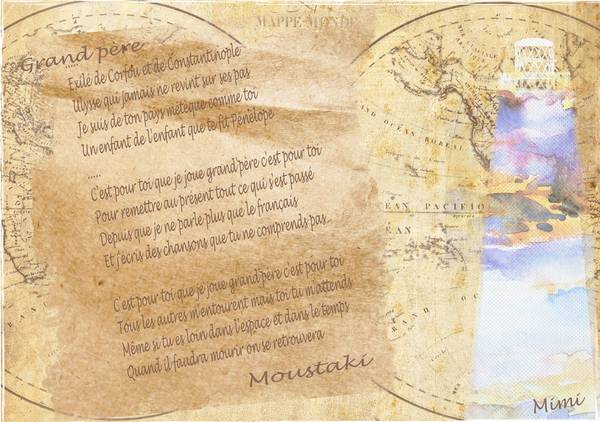 MAPPE-MONDE
Grand père
.....
Exilé de Corfou et de Constantinople
Ulysse qui jamais ne revint sur ses pas
Je suis de ton pays métèque comme toi
Un enfant de l'enfant que te fit Pénélope
.....
C'est pour toi que je joue grand'père c'est pour toi
Pour remettre au présent tout ce qui s'est passé
Depuis que je ne parle plus que le français
Et j'écris des chansons que tu ne comprends pas...
C'est pour toi que je joue grand'père c'est pour toi
Tous les autres m'entourent mais toi tu m'attends
Même si tu es loin dans l'espace et dans le temps
Quand il faudra mourir on se retrouvera
Moustaki
GRAND OCÉAN BOREAL
OCEAN PACIFIQUE
GRAND OCEAN
Mimi